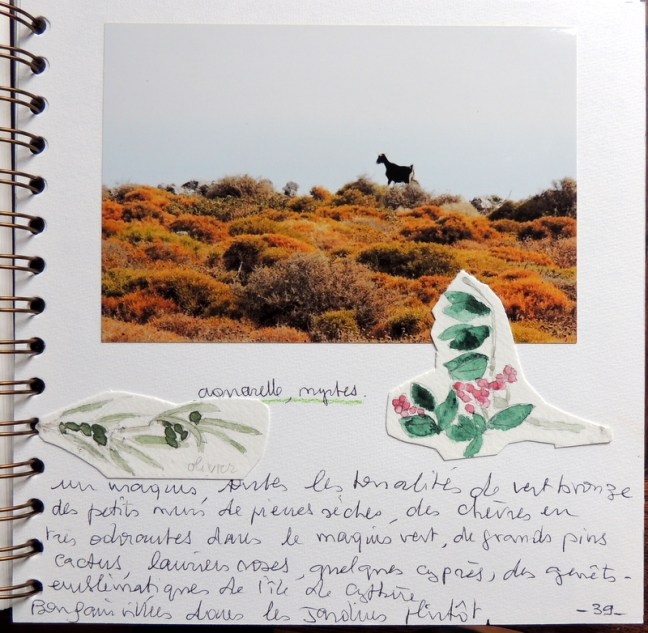 aquarelle, myrtes.
olivier
un maquis, toutes les tonalités de vert bronze
des petits murs de pierres sèches, des chèvres en
très odorantes dans le maquis vert, de grands pins
cactus, lauriers roses, quelques cyprès, des genêts -
emblématiques de l'île de Cythère
Bougainvillées dans les jardins plutôt.
-39-